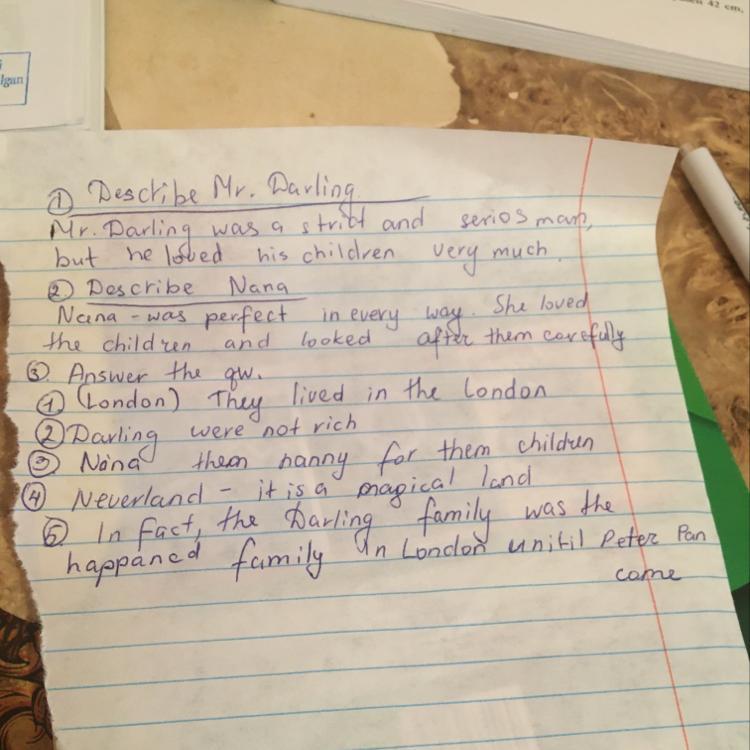 42 cm.
lgan
① Describe Mr. Darling
Mr. Darling was a strict and serios man,
but he loved his children very much.
② Describe Nana
Nana - was perfect in every way. She loved
the children and looked after them carefully
③. Answer the qw.
① (London) They lived in the London
② Darling were not rich
③ Nana them nanny for them children
④ Neverland - it is a magical land
⑤ In fact, the Darling family was the
happaned family in London unitil Peter Pan
come